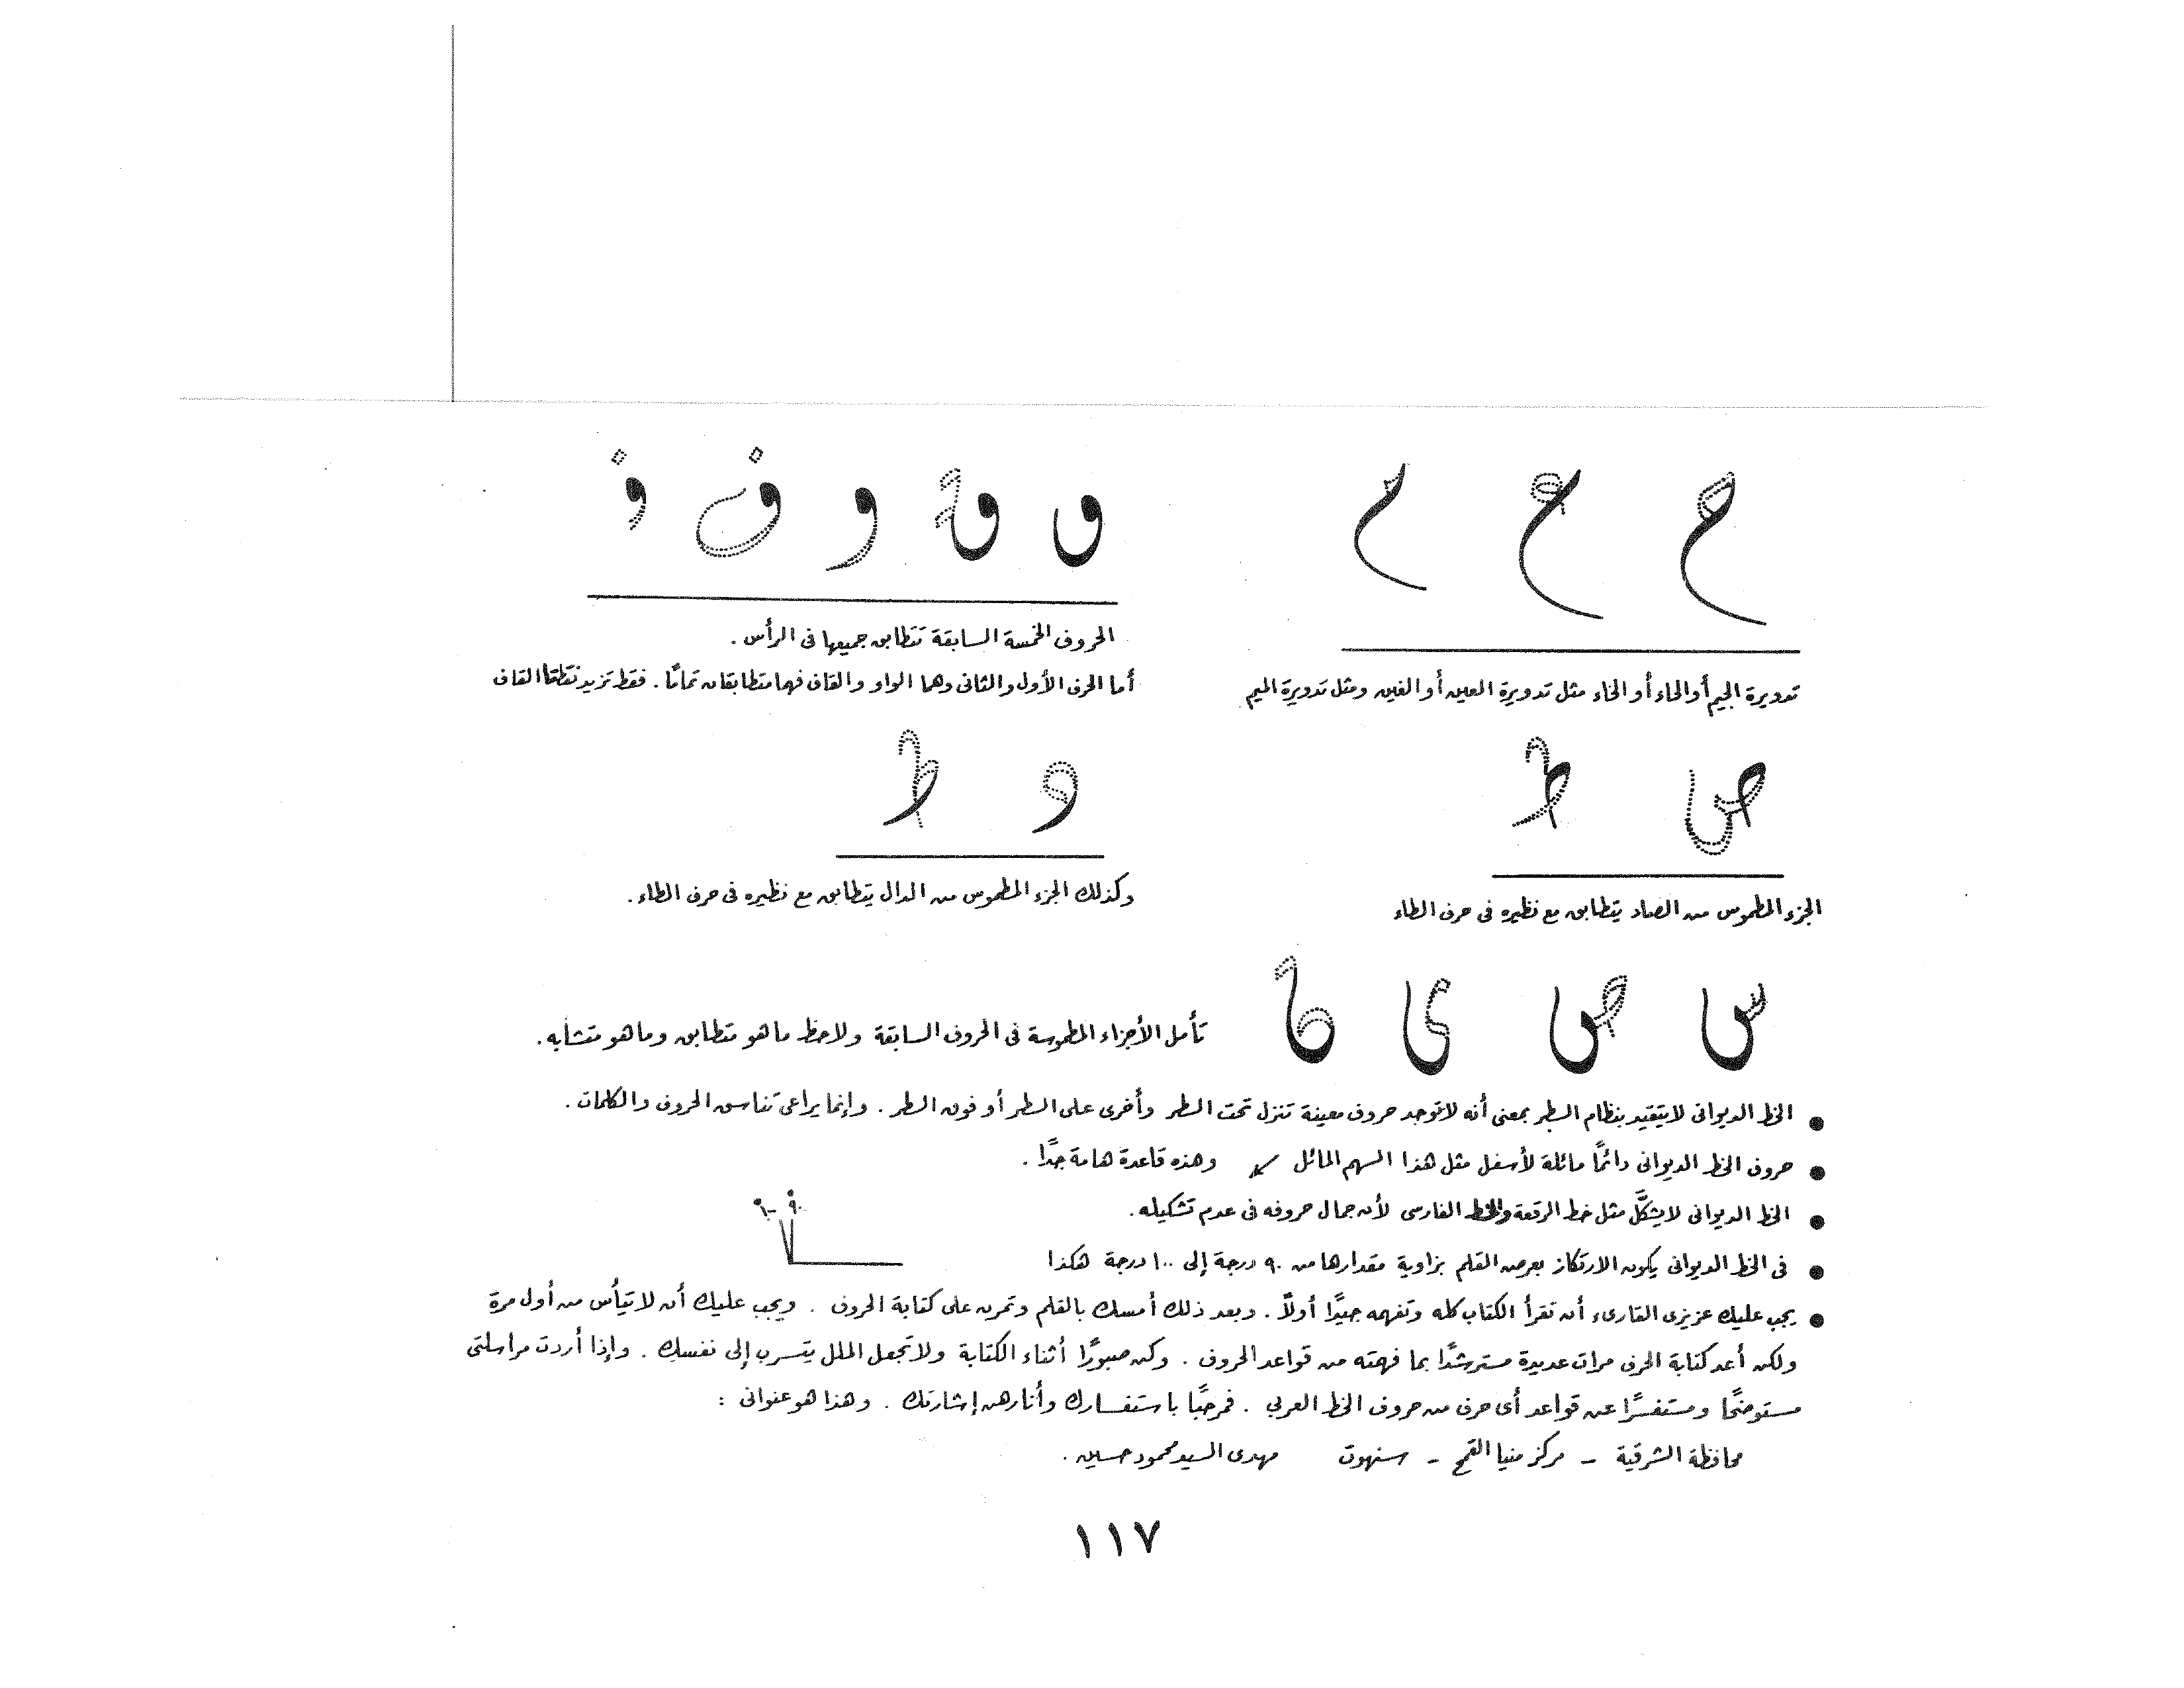 ح ع م
تدويرة الجيم أوالحاء أو الخاء مثل تدويرة العين أو الغين ومثل تدويرة الميم
و ق و ف ف
الحروف الخمسة السابقة تتطابق جميعها فى الرأس .
أما الحرف الأول والثانى وهما الواو والقاف فهما متطابقان تمامًا . فقط تزيد نقطتا القاف
ص ط
الجزء المطموس من الصاد يتطابق مع نظيره فى حرف الطاء
د ط
وكذلك الجزء المطموس من الدال يتطابق مع نظيره فى حرف الطاء .
س ص ى
تأمل الأجزاء المطموسة فى الحروف السابقة ولاحظ ماهو متطابق وماهو متشابه .
● الخط الديوانى لايتقيد بنظام السطر بمعنى أنه لاتوجد حروف معينة تنزل تحت السطر وأخرى على السطر أو فوق السطر . وإنما يراعى تناسق الحروف والكلمات .
● حروف الخط الديوانى دائمًا مائلة لأسفل مثل هذا السهم المائل ↙ وهذه قاعدة هامة جدًا .
● الخط الديوانى لايشكَّل مثل خط الرقعة والخط الفارسى لأن جمال حروفه فى عدم تشكيله .
● فى الخط الديوانى يكون الارتكاز بعرض القلم بزاوية مقدارها من ٩٠ درجة إلى ١٠٠ درجة هكذا
٩٠ ١٠٠
● يجب عليك عزيزى القارىء أن تقرأ الكتاب كله وتفهمه جيدًا أولاً . وبعد ذلك أمسك بالقلم وتمرن على كتابة الحروف . ويجب عليك أن لاتيأس من أول مرة
ولكن أعد كتابة الحرف مرات عديدة مسترشدًا بما فهمته من قواعد الحروف . وكن صبورًا أثناء الكتابة ولاتجعل الملل يتسرب إلى نفسك . وإذا أردت مراسلتى
مستوضحًا ومستفسرًا عن قواعد أى حرف من حروف الخط العربي . فمرحبًا باستفسارك وأنا رهن إشارتك . وهذا هو عنوانى :
محافظة الشرقية - مركز منيا القمح - سنهوت مهدى السيد محمود حسين .
١١٧